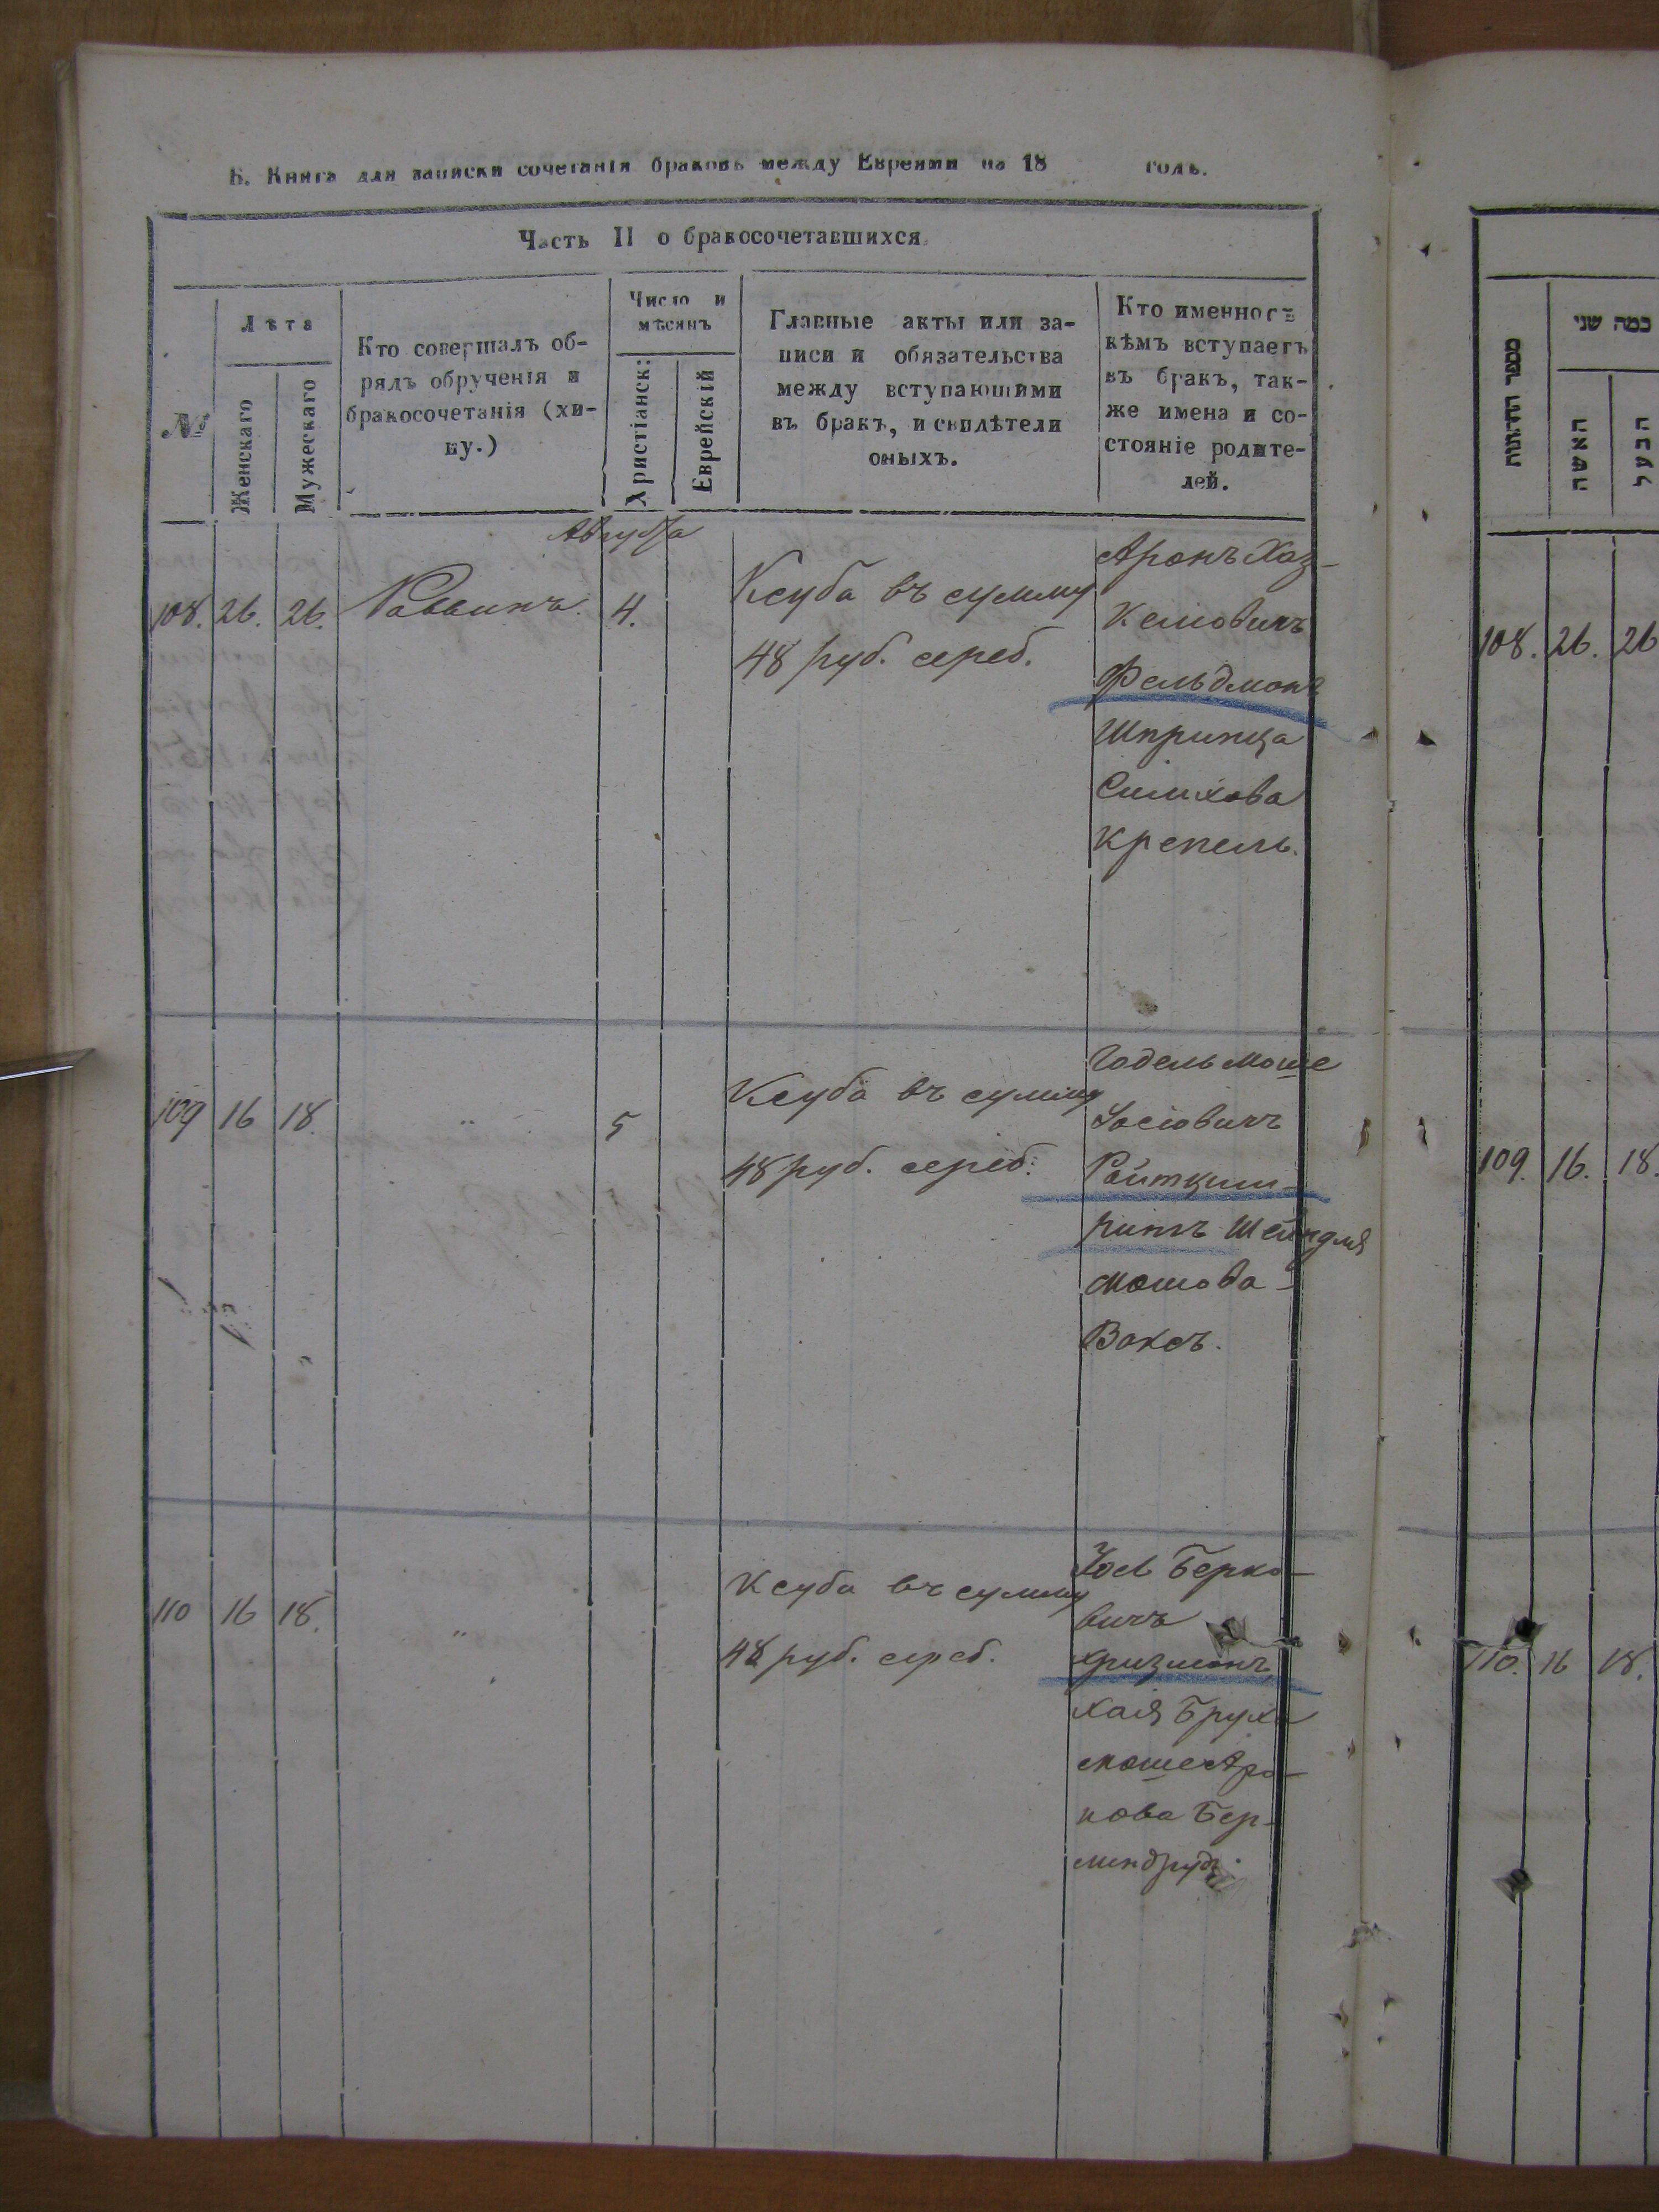 Б. Книга для записки сочетанія браковъ между Евреями на 18 годъ.
Часть II о бракосочетавшихся.
№
Лѣта
Женскаго
Мужескаго
Кто совершалъ об-
рядъ обрученія и
бракосочетанія (хи-
пу.)
Число и
мѣсяцъ
Христіанск:
Еврейскій
Главные акты или за-
писи и обязательства
между вступающими
въ бракъ, и свидѣтели
оныхъ.
Кто именно съ
кѣмъ вступаетъ
въ бракъ, так-
же имена и со-
стояніе родите-
лей.
Августа
108. 26. 26. Раввинъ. 4.
Ксуба въ сумму
48 руб. сереб.
Аронъ Хаз-
келіовичъ
Фельдманъ
Шпринца
Симхова
Крепель.
109 16 18. " 5
Ксуба въ сумму
48 руб. сереб.
Годель Моше
Іосіовичъ
Ройтцим-
Шейндля
Мошова
Ваксъ.
110 16 18. "
Ксуба въ сумму
48 руб. сереб.
Іось Берко-
вичъ
Хая Бруха
Моше Аро-
нова Бер-
מספר החתונות
כמה שני
האשה
הבעל
108. 26. 26
109. 16. 18.
110. 16 18.